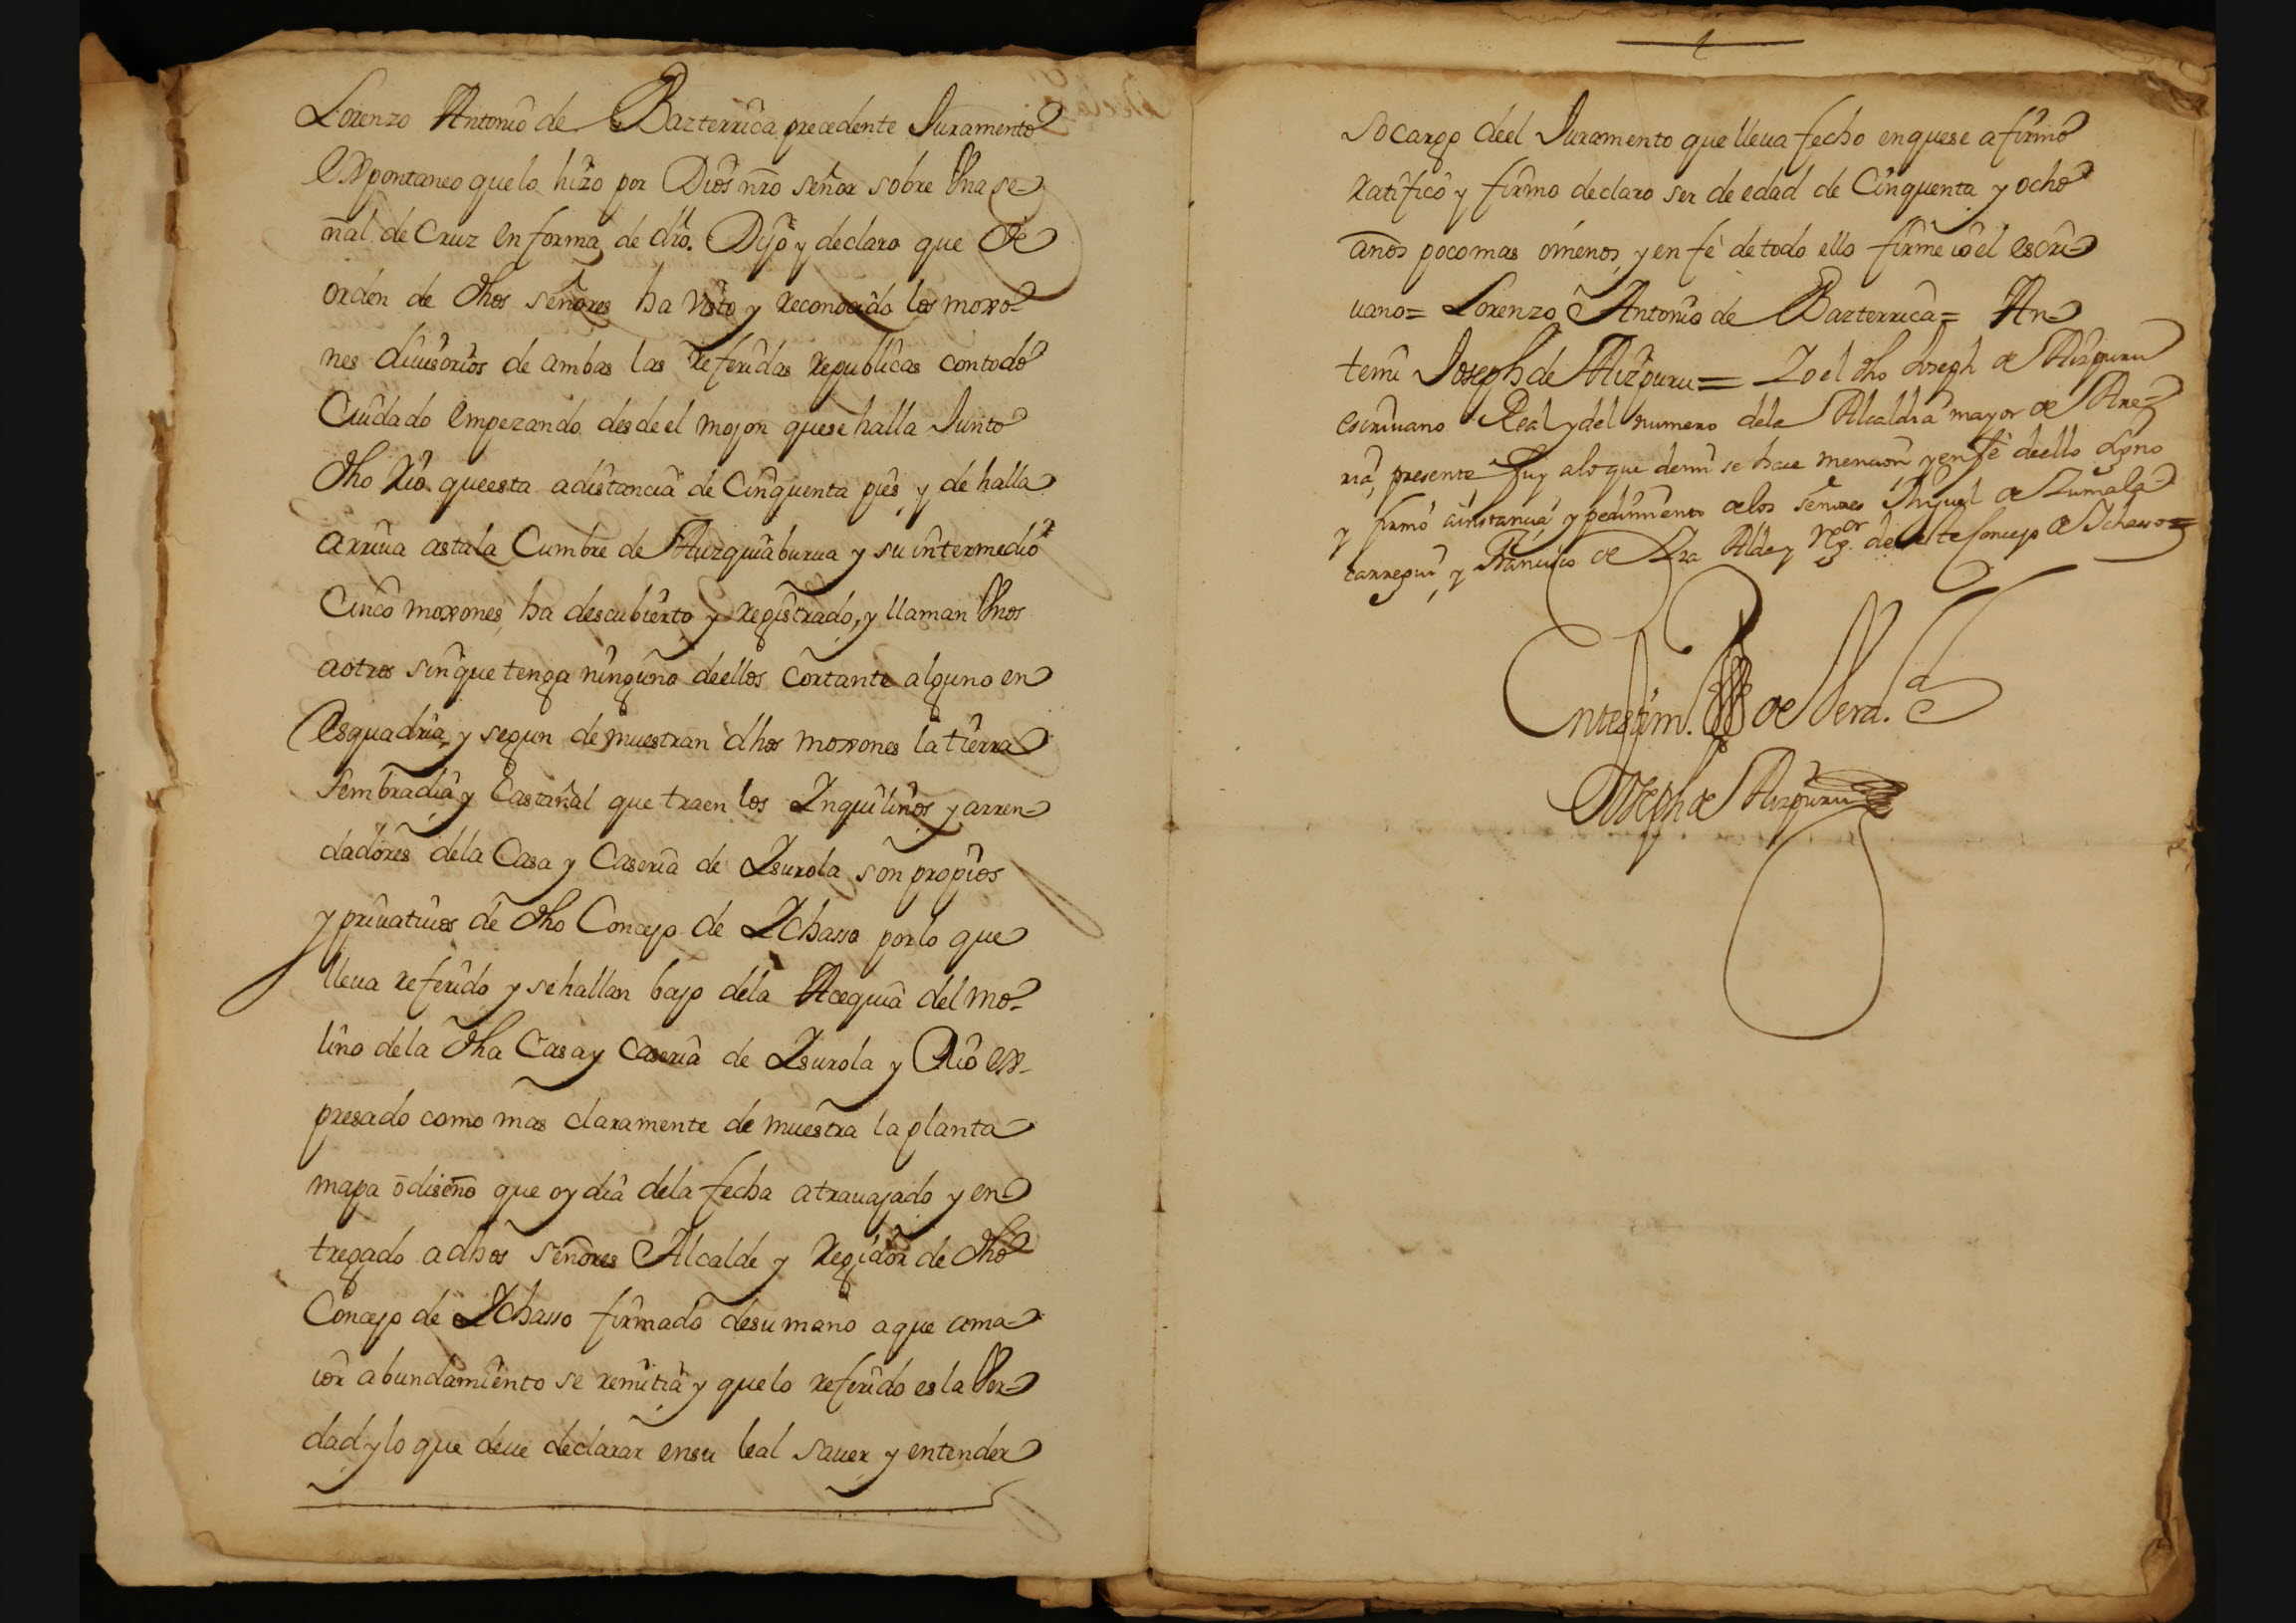 Lorenzo Antonio de Bazterrica, precedente Juramento
Expontaneo que lo hizo por Dios nrō señor sobre Vna se-
ñal de Cruz en forma de drō. Dijo y declaro que de
orden de dhos señores ha visto y reconocido los moxo-
nes diuisorios de ambas las referidas republicas con todo
Cuidado empezando desde el mojon que se halla Junto
dho rio que esta a distancia de Cinquenta pies, y de halla
arriua asta la Cumbre de Auzquiaburua y su intermedio
Cinco moxones, ha descubierto y registrado, y llaman Vnos
a otros sin que tenga ninguno de ellos cortante alguno en
Esquadria, y segun demuestran dhos moxones la tierra
sembradia y Castañal que traen los Inquilinos y arren-
dadores dela Casa y Caseria de Isurola son propios
y priuatiuos de dho Concejo de Ichasso por lo que
lleua referido y se hallan bajo dela Acequia del mo-
lino dela dha Casa y Caseria de Isurola y Rio ex-
presado como mas claramente demuestra la planta
mapa o diseño que oy dia dela fecha a trauajado y en-
tregado a dhos señores Alcalde y Regidor de dho
Concejo de Ichasso firmado de su mano a que a ma-
ior abundamiento se remitia y que lo referido es la Ver-
dad y lo que deue declarar en su leal sauer y entender
so cargo de el Juramento que lleua fecho en que se afirmo
ratifico y firmo declaro ser de edad de Cinquenta y ocho
años poco mas o menos, y en fe de todo ello firme io el escri-
uano = Lorenzo Antonio de Bazterrica = An-
temi Joseph de Aizpuru = Io el dho Joseph de Aizpuru
escriuano Real y del numero dela Alcaldia mayor de Are-
ria, presente fuy alo que demi se hace mencion y en fe dello signo
y firmo a instancia y pedimiento delos señores Miguel de Zumala-
carregui, y Francisco de Alde y Rgor. de este Concejo de Ichasso =
En testim. de Verd.
Joseph de Aizpuru